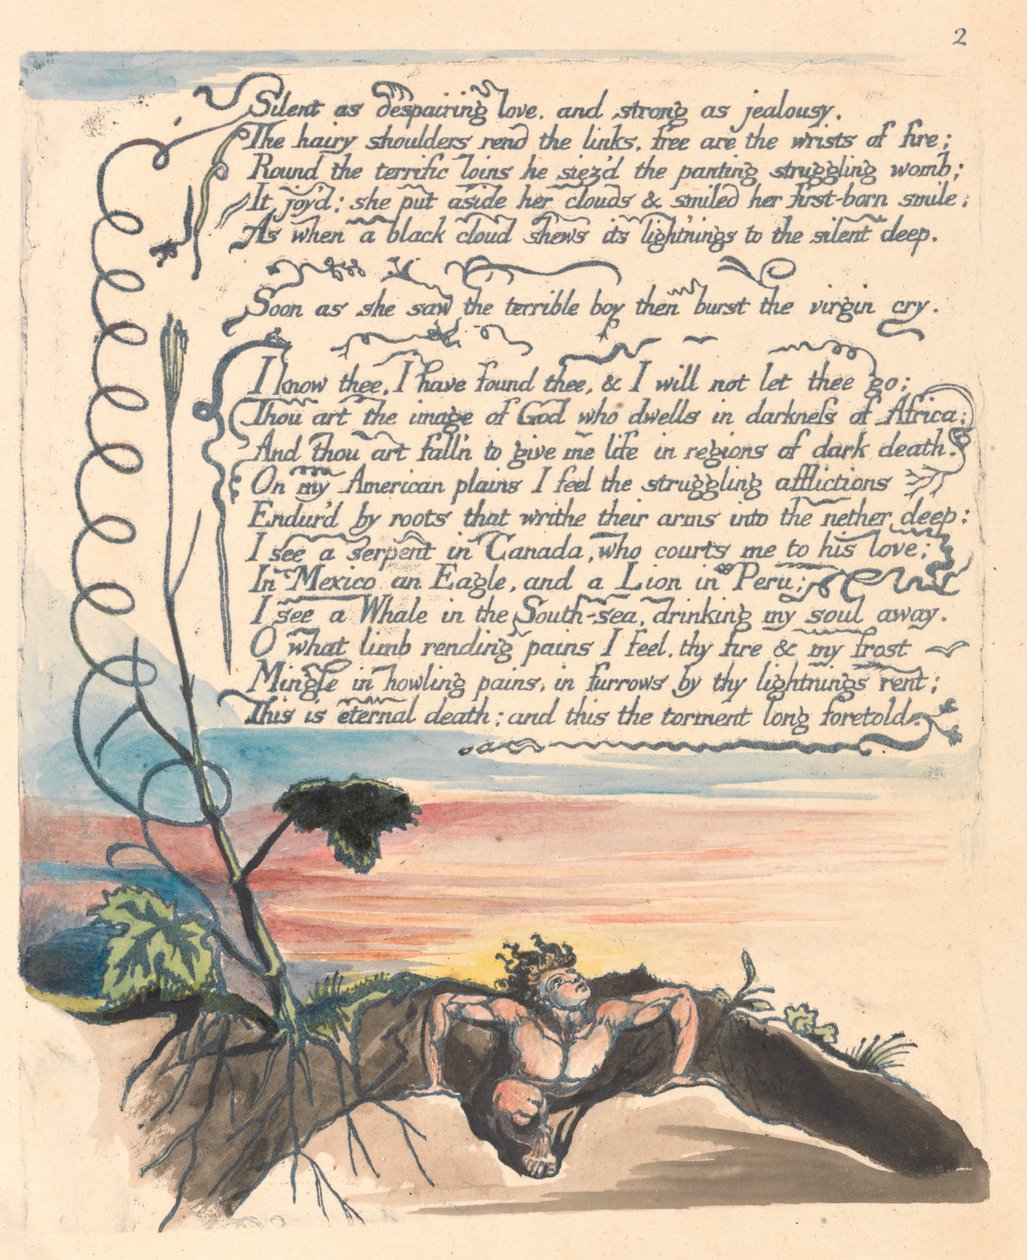 2
Silent as despairing love, and strong as jealousy,
The hairy shoulders rend the links, free are the wrists of fire;
Round the terrific loins he siez'd the panting struggling womb;
It joy'd: she put aside her clouds & smiled her first-born smile;
As when a black cloud shews its lightnings to the silent deep.
Soon as she saw the terrible boy then burst the virgin cry.
I know thee, I have found thee, & I will not let thee go;
Thou art the image of God who dwells in darkness of Africa;
And thou art fall'n to give me life in regions of dark death.
On my American plains I feel the struggling afflictions
Endur'd by roots that writhe their arms into the nether deep:
I see a serpent in Canada, who courts me to his love;
In Mexico an Eagle, and a Lion in Peru;
I see a Whale in the South-sea, drinking my soul away.
O what limb rending pains I feel, thy fire & my frost
Mingle in howling pains, in furrows by thy lightnings rent;
This is eternal death; and this the torment long foretold.